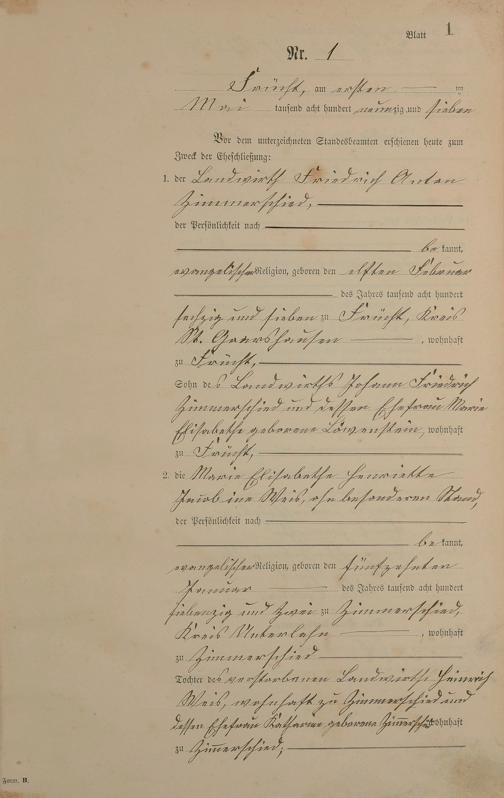 Blatt 1
Nr. 1
Frücht, am ersten
Mai tausend acht hundert neunzig und sieben
Vor dem unterzeichneten Standesbeamten erschienen heute zum
Zweck der Eheschließung:
1. der Landwirth Friedrich Anton
Zimmerschied,
der Persönlichkeit nach
be kannt,
evangelischer Religion, geboren den elften Februar
des Jahres tausend acht hundert
sechzig und sieben zu Frücht, Kreis
St. Goarshausen, wohnhaft
zu Frücht,
Sohn des Landwirths Johann Friedrich
Zimmerschied und dessen Ehefrau Marie
Elisabethe geborene Löwenstein, wohnhaft
zu Frücht,
2. die Marie Elisabethe Henriette
Jacobine Weis, ohne besonderen Stand,
der Persönlichkeit nach
be kannt,
evangelischer Religion, geboren den fünfzehnten
Januar des Jahres tausend acht hundert
siebenzig und zwei zu Zimmerschied,
Kreis Unterlahn, wohnhaft
zu Zimmerschied
Tochter des verstorbenen Landwirths Heinrich
Weis, wohnhaft zu Zimmerschied und
dessen Ehefrau Katharine geborene wohnhaft
zu Zimmerschied,
Form. B.